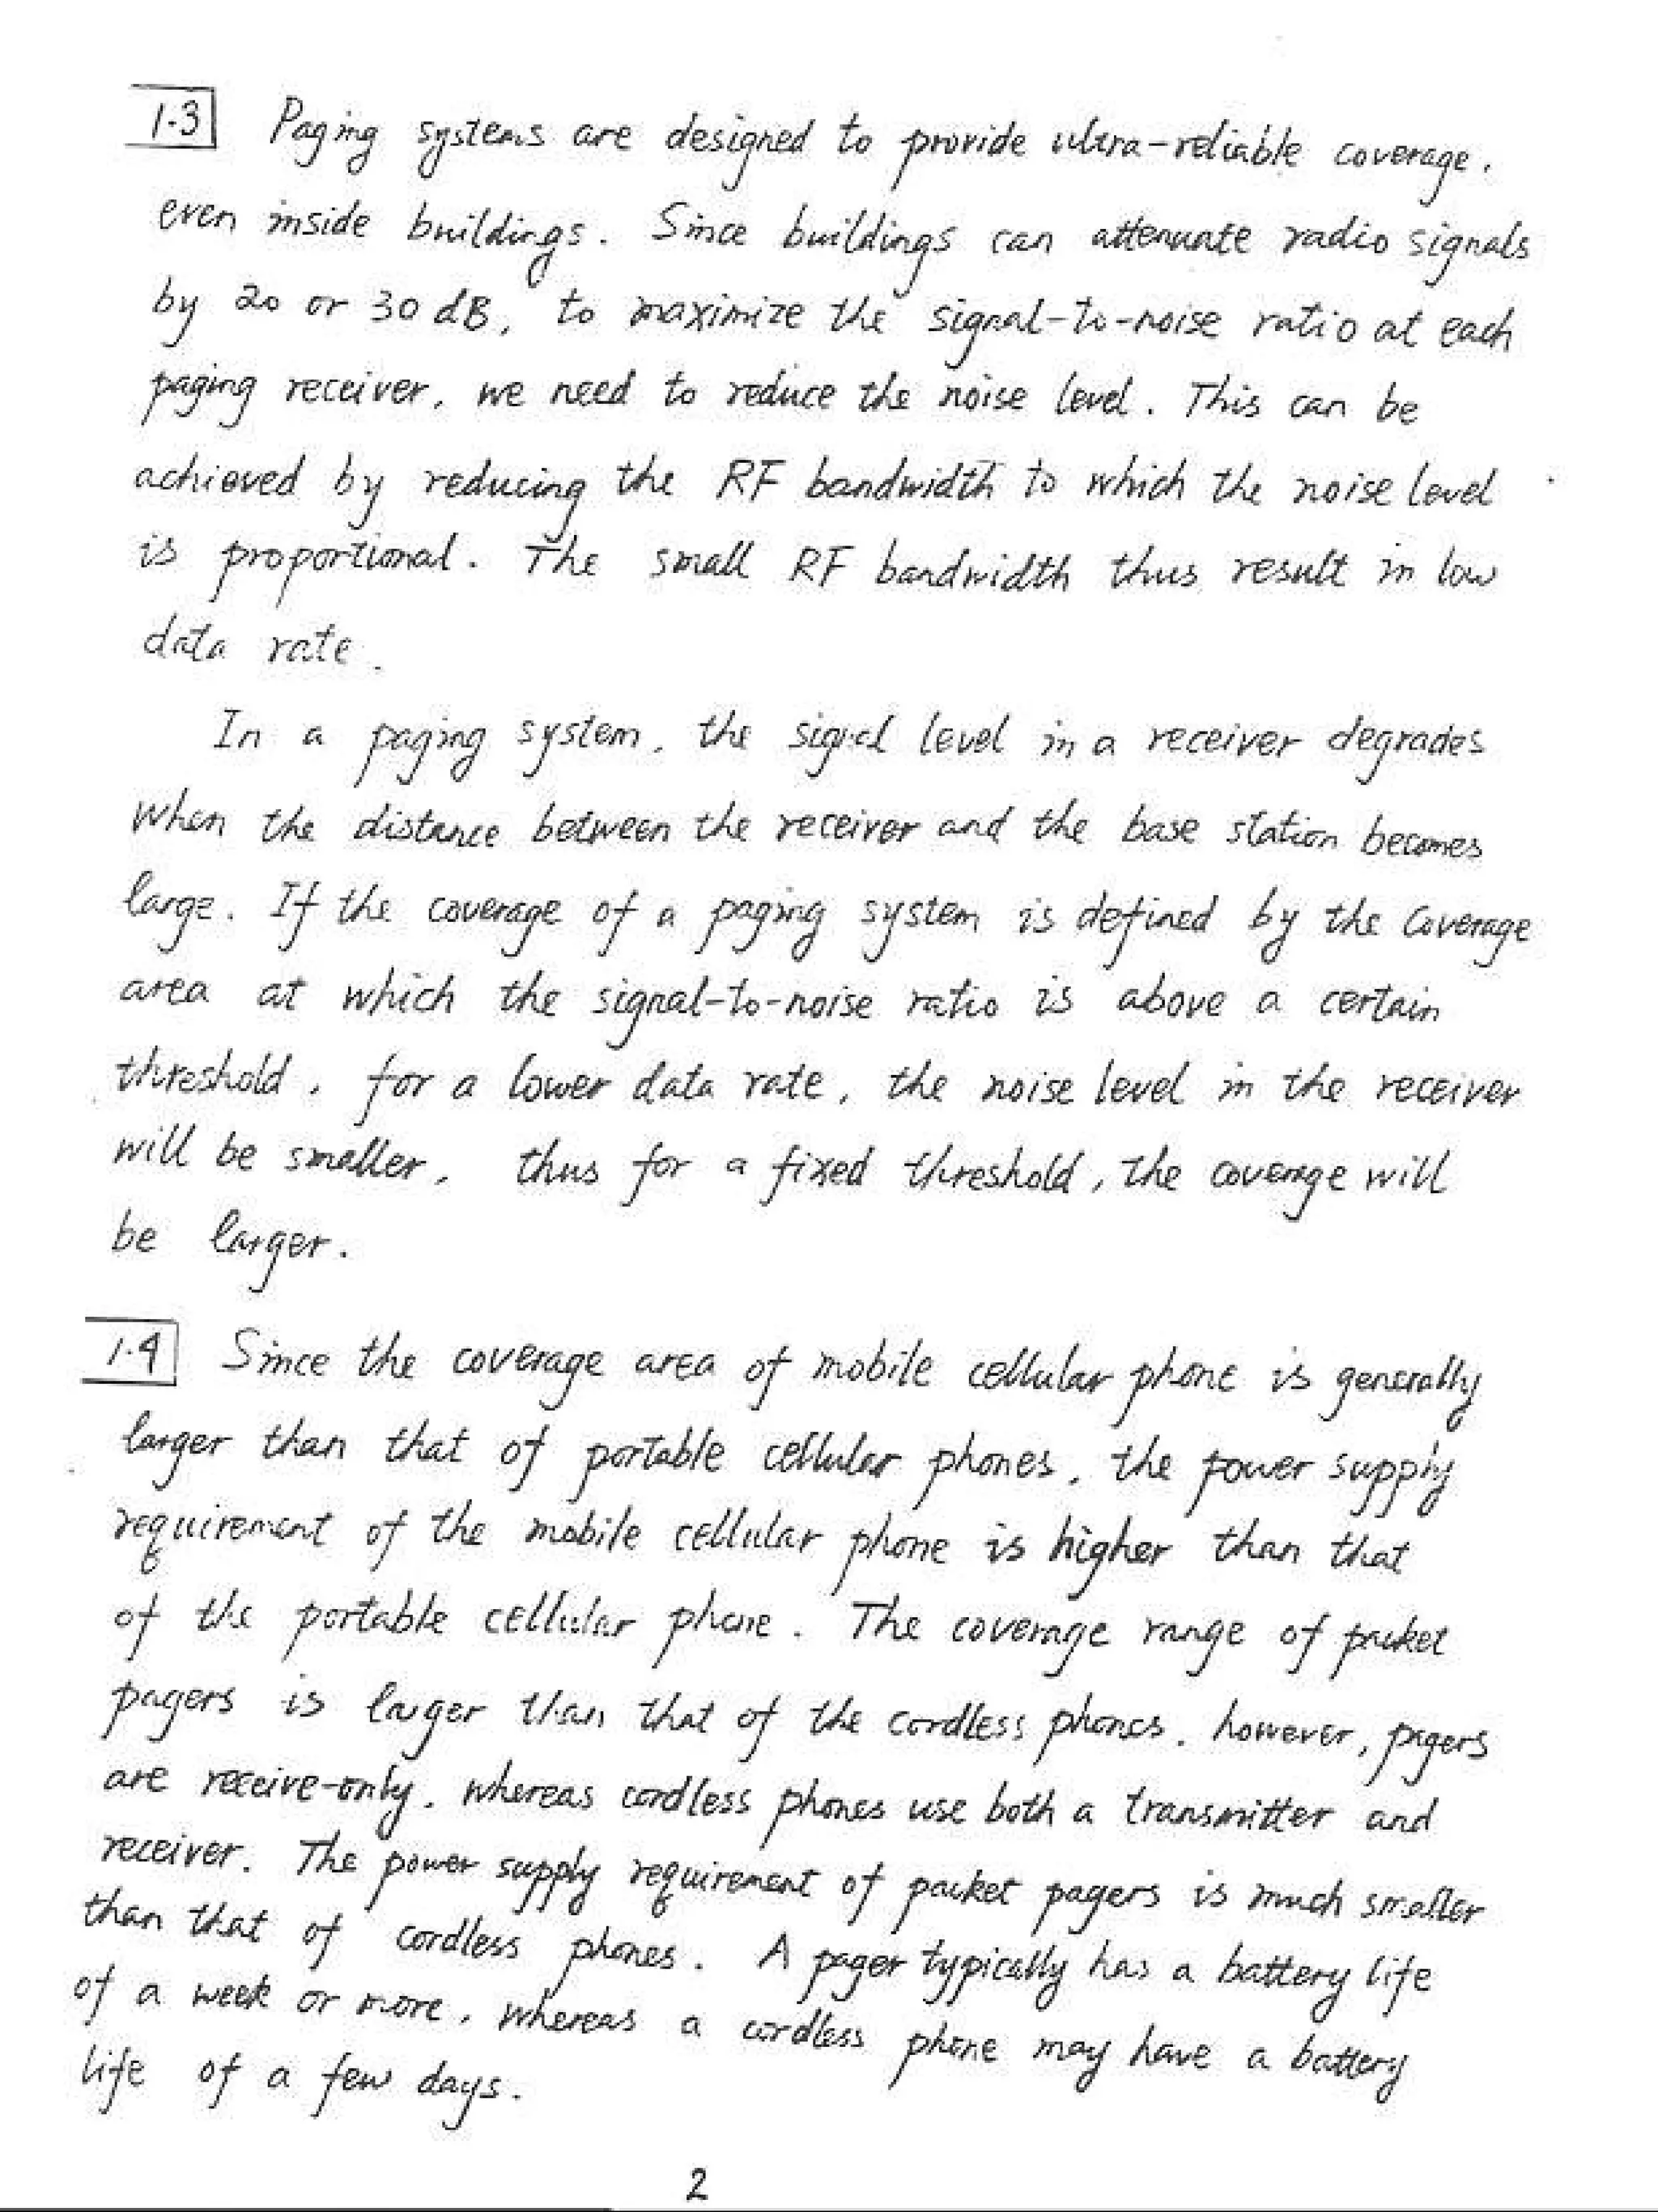 1.3 Paging systems are designed to provide ultra-reliable coverage,
even inside buildings. Since buildings can attenuate radio signals
by 20 or 30 dB, to maximize the signal-to-noise ratio at each
paging receiver, we need to reduce the noise level. This can be
achieved by reducing the RF bandwidth to which the noise level
is proportional. The small RF bandwidth thus result in low
data rate.
In a paging system, the signal level in a receiver degrades
when the distance between the receiver and the base station becomes
large. If the coverage of a paging system is defined by the coverage
area at which the signal-to-noise ratio is above a certain
threshold, for a lower data rate, the noise level in the receiver
will be smaller, thus for a fixed threshold, the coverage will
be larger.
1.4 Since the coverage area of mobile cellular phone is generally
larger than that of portable cellular phones, the power supply
requirement of the mobile cellular phone is higher than that
of the portable cellular phone. The coverage range of packet
pagers is larger than that of the cordless phones, however, pagers
are receive-only, whereas cordless phones use both a transmitter and
receiver. The power supply requirement of packet pagers is much smaller
than that of cordless phones. A pager typically has a battery life
of a week or more, whereas a cordless phone may have a battery
life of a few days.
2